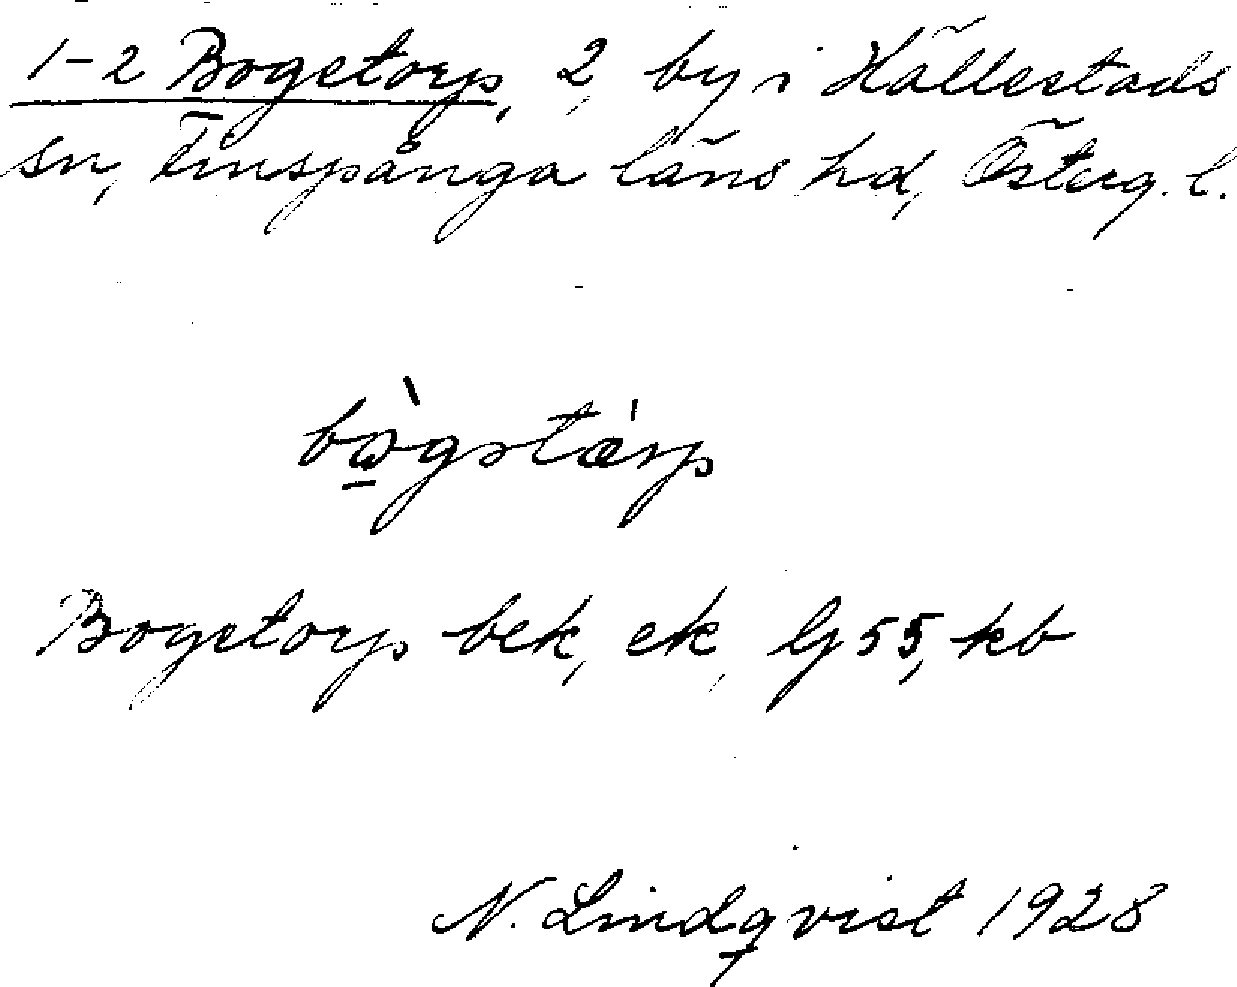 1-2 Bogetorp, 2, by i Hällestads
sn, Finspånga läns hd, Österg. l.
bò̲gstæ̀rp
Bogetorp bek, ek, Gj 55, kb
N. Lindqvist 1928